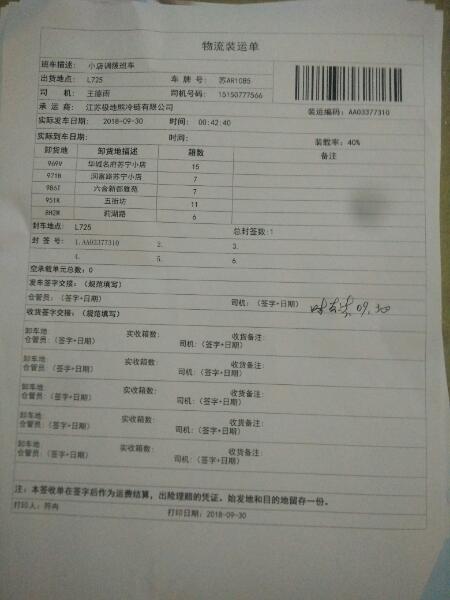 物流装运单
班车描述: 小店调拨班车
出货地点: L725 车牌号: 苏AR1085
司机: 王德雨 司机号码: 15150777566
承运商: 江苏极地熊冷链有限公司 装运编码: AA03377310
实际发车日期: 2018-09-30 时间: 00:42:40
实际到车日期: 时间: 装载率: 40%
卸货地 卸货地描述 箱数 备注
969V 华城名府苏宁小店 15
971B 润富路苏宁小店 7
986I 六合新都雅苑 7
951K 五街坊 11
8H2W 莉湖路 6
封车地点: L725 总封签数:1
封签号: 1.AA03377310 2. 3.
4. 5. 6.
空承载单元总数: 0
发车签字交接: (规范填写)
仓管员: (签字+日期) 司机: (签字+日期) 09.30
收货签字交接: (规范填写)
卸车地 实收箱数: 收货备注:
仓管员: (签字+日期) 司机: (签字+日期)
卸车地 实收箱数: 收货备注:
仓管员: (签字+日期) 司机: (签字+日期)
卸车地 实收箱数: 收货备注:
仓管员: (签字+日期) 司机: (签字+日期)
卸车地 实收箱数: 收货备注:
仓管员: (签字+日期) 司机: (签字+日期)
卸车地 实收箱数: 收货备注:
仓管员: (签字+日期) 司机: (签字+日期)
注: 本签收单在签字后作为运费结算, 出险理赔的凭证。始发地和目的地留存一份。
打印人: 符冉 打印日期: 2018-09-30